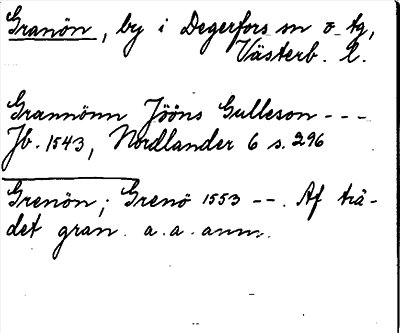 Granön, by i Degerfors sn o. tg,
Västerb. l.
Grannönn Jööns Gulleson - - -
Jb. 1543, Nordlander 6 s. 296
Grenön; Grenö 1553 - - . Af trä-
det gran. a. a. anm.